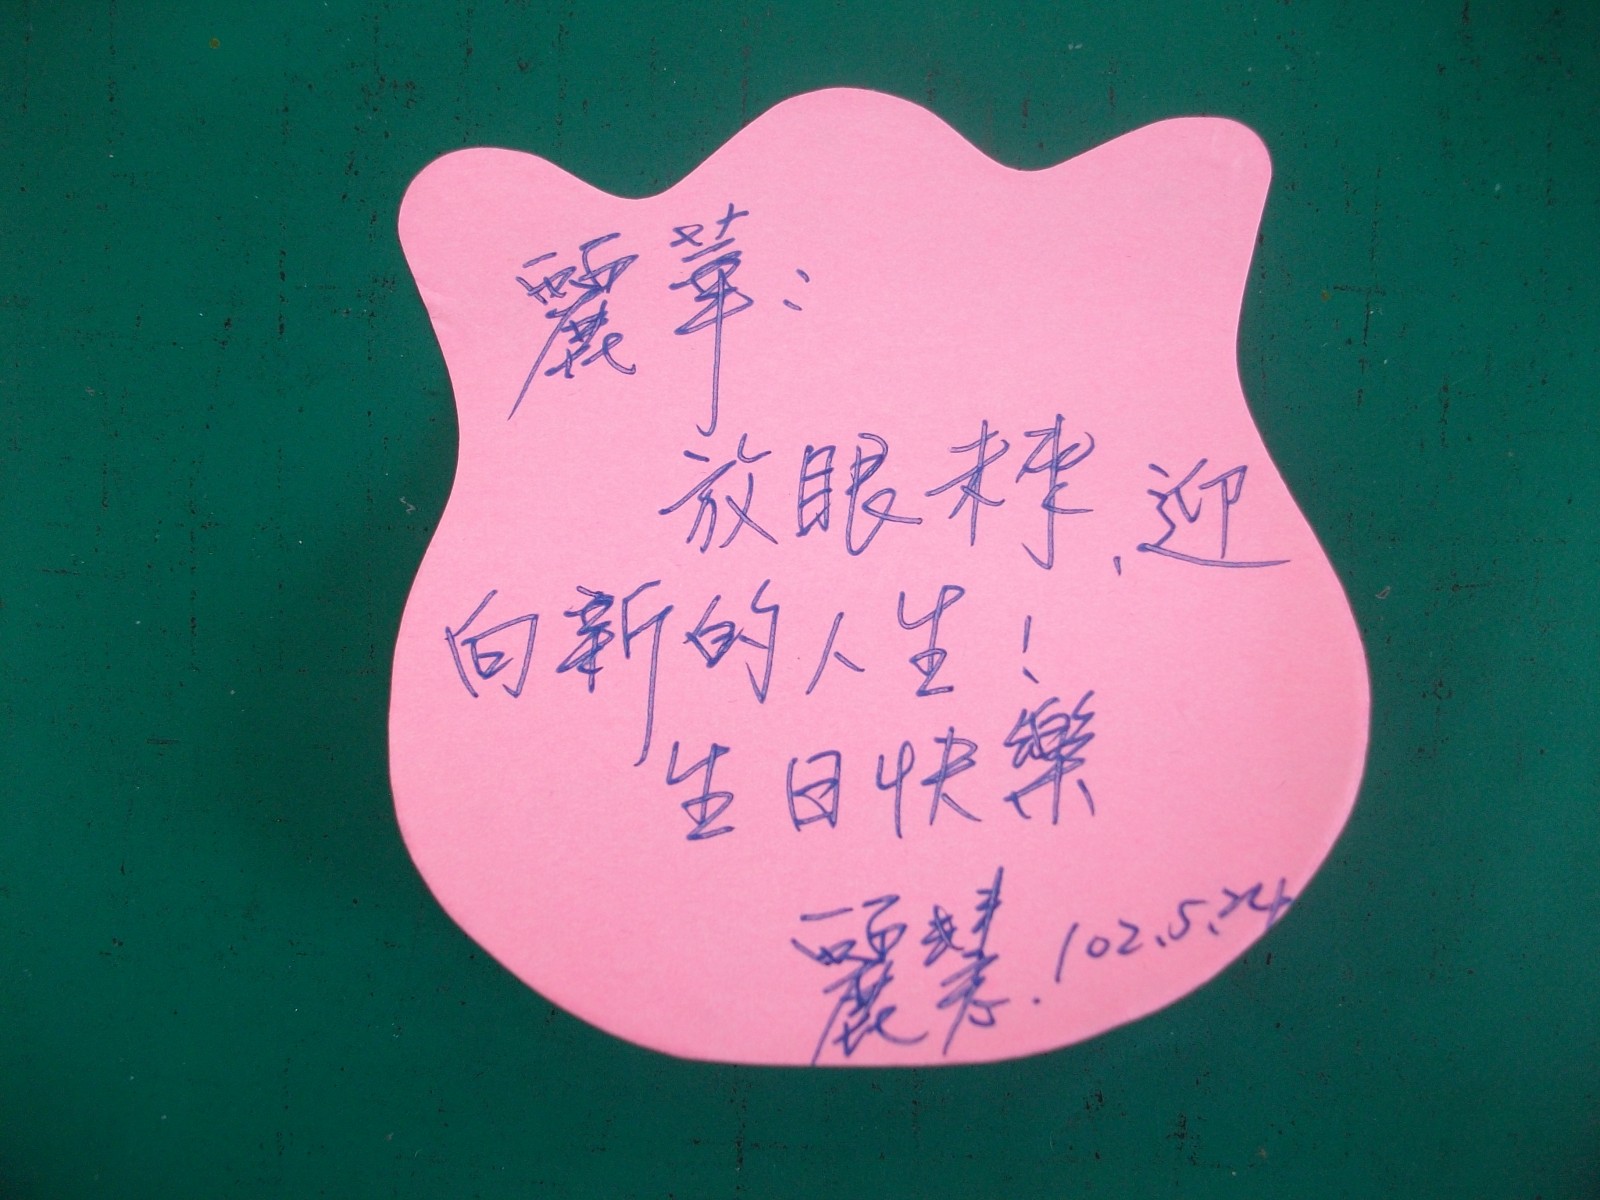 麗華：
放眼未來，迎
向新的人生！
生日快樂
麗慧．102.5.24